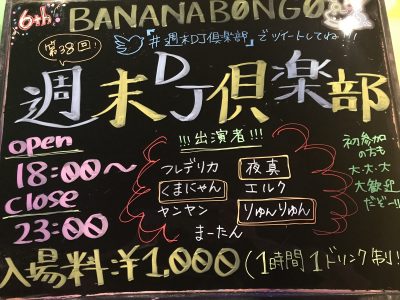 6th BANANABONGO
第38回!
#週末DJ倶楽部 でツイートしてね!!!
週末DJ倶楽部
open
18:00〜
close
23:00
!!!出演者!!!
フレデリカ 夜真
くまにゃん エルク
ヤンヤン りゅんりゅん
まーたん
初参加
の方も
大大大
大歓迎
だぞー!!
入場料:¥1,000(1時間1ドリンク制!)